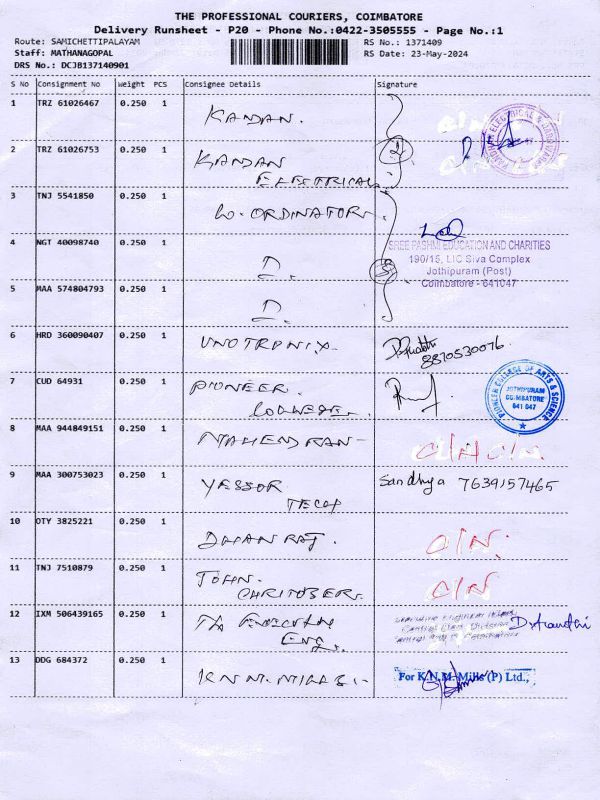 THE PROFESSIONAL COURIERS, COIMBATORE
Delivery Runsheet - P20 - Phone No.:0422-3505555 - Page No.:1
Route: SAMICHETTIPALAYAM
Staff: MATHANAGOPAL
DRS No.: DCJB137140901
RS No.: 1371409
RS Date: 23-May-2024
S No Consignment No Weight PCS Consignee Details Signature
1 TRZ 61026467 0.250 1 KANDAN.
2 TRZ 61026753 0.250 1 KANDAN
ELECTRICAL
3 TNJ 5541850 0.250 1 CO-ORDINATOR.
4 NGT 40098740 0.250 1
SREE PASHMI EDUCATION AND CHARITIES
190/15, LIC Siva Complex
Jothipuram (Post)
Coimbatore - 641047
5 MAA 574804793 0.250 1
6 HRD 360090407 0.250 1 UNOTRONIX 8870530076
7 CUD 64931 0.250 1 PIONEER
COLLEGE.
PIONEER COLLEGE OF ARTS & SCIENCE
JOTHIPURAM
COIMBATORE
641 047
8 MAA 944849151 0.250 1 MAHENDRAN
9 MAA 300753023 0.250 1 YESSOR Sandhya 7639157465
TECH
10 OTY 3825221 0.250 1 DHANRAJ. C/N.
11 TNJ 7510879 0.250 1 JOHN. C/N
12 IXM 506439165 0.250 1
13 DDG 684372 0.250 1 K N M. MILLS For K.N.M. Mills (P) Ltd.,